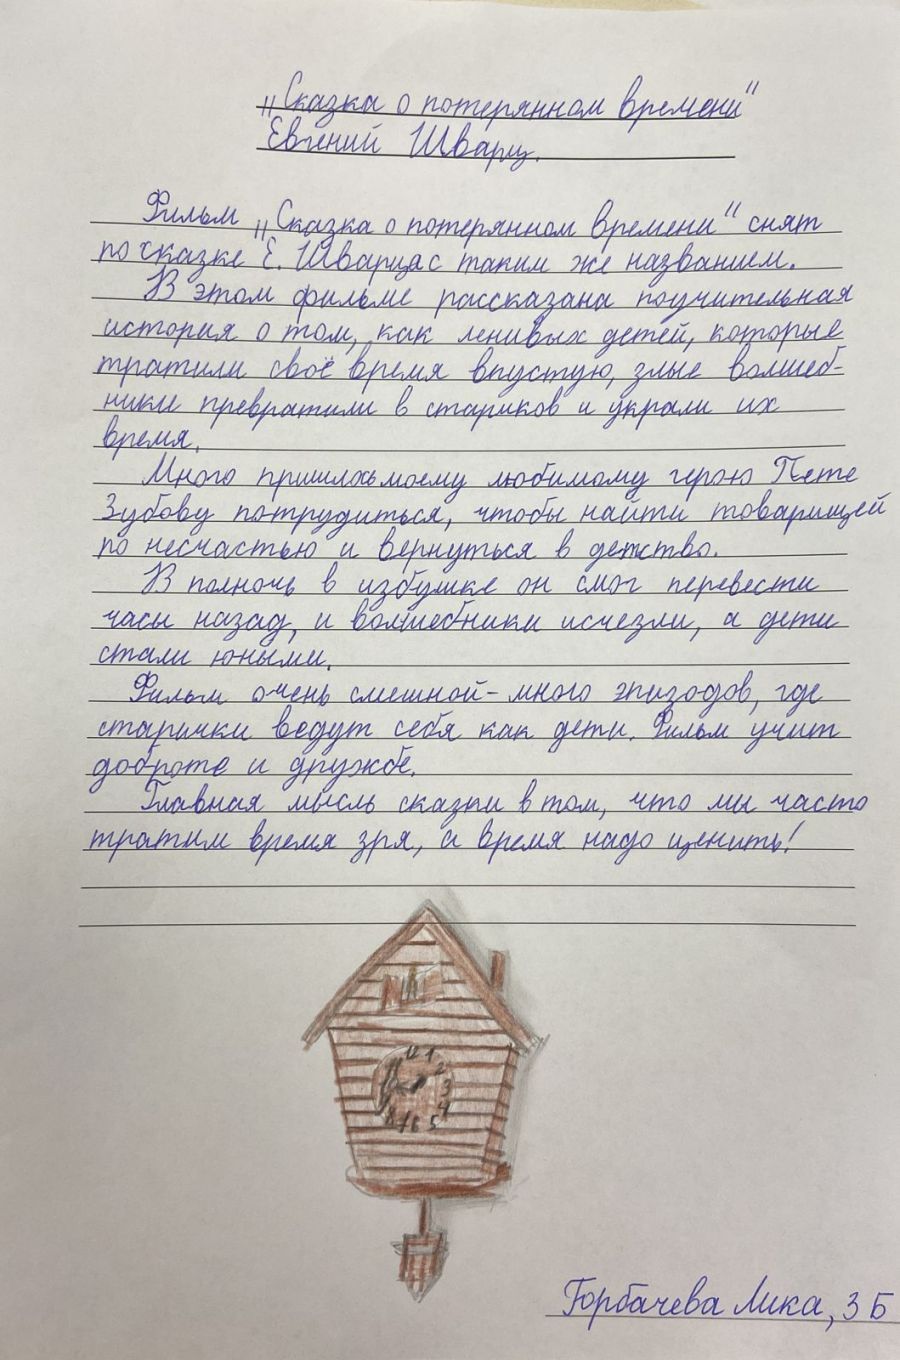 „Сказка о потерянном времени"
Евгений Шварц.
Фильм „Сказка о потерянном времени" снят
по сказке Е. Шварца с таким же названием.
В этом фильме рассказана поучительная
история о том, как ленивых детей, которые
тратили своё время впустую, злые волшеб-
ники превратили в стариков и украли их
время.
Много пришлось моему любимому герою Пете
Зубову потрудиться, чтобы найти товарищей
по несчастью и вернуться в детство.
В полночь в избушке он смог перевести
часы назад, и волшебники исчезли, а дети
стали юными.
Фильм очень смешной - много эпизодов, где
старички ведут себя как дети. Фильм учит
доброте и дружбе.
Главная мысль сказки в том, что мы часто
тратим время зря, а время надо ценить!
12 1
2
3
4
5
6
7
8
Горбачева Лика, 3 Б